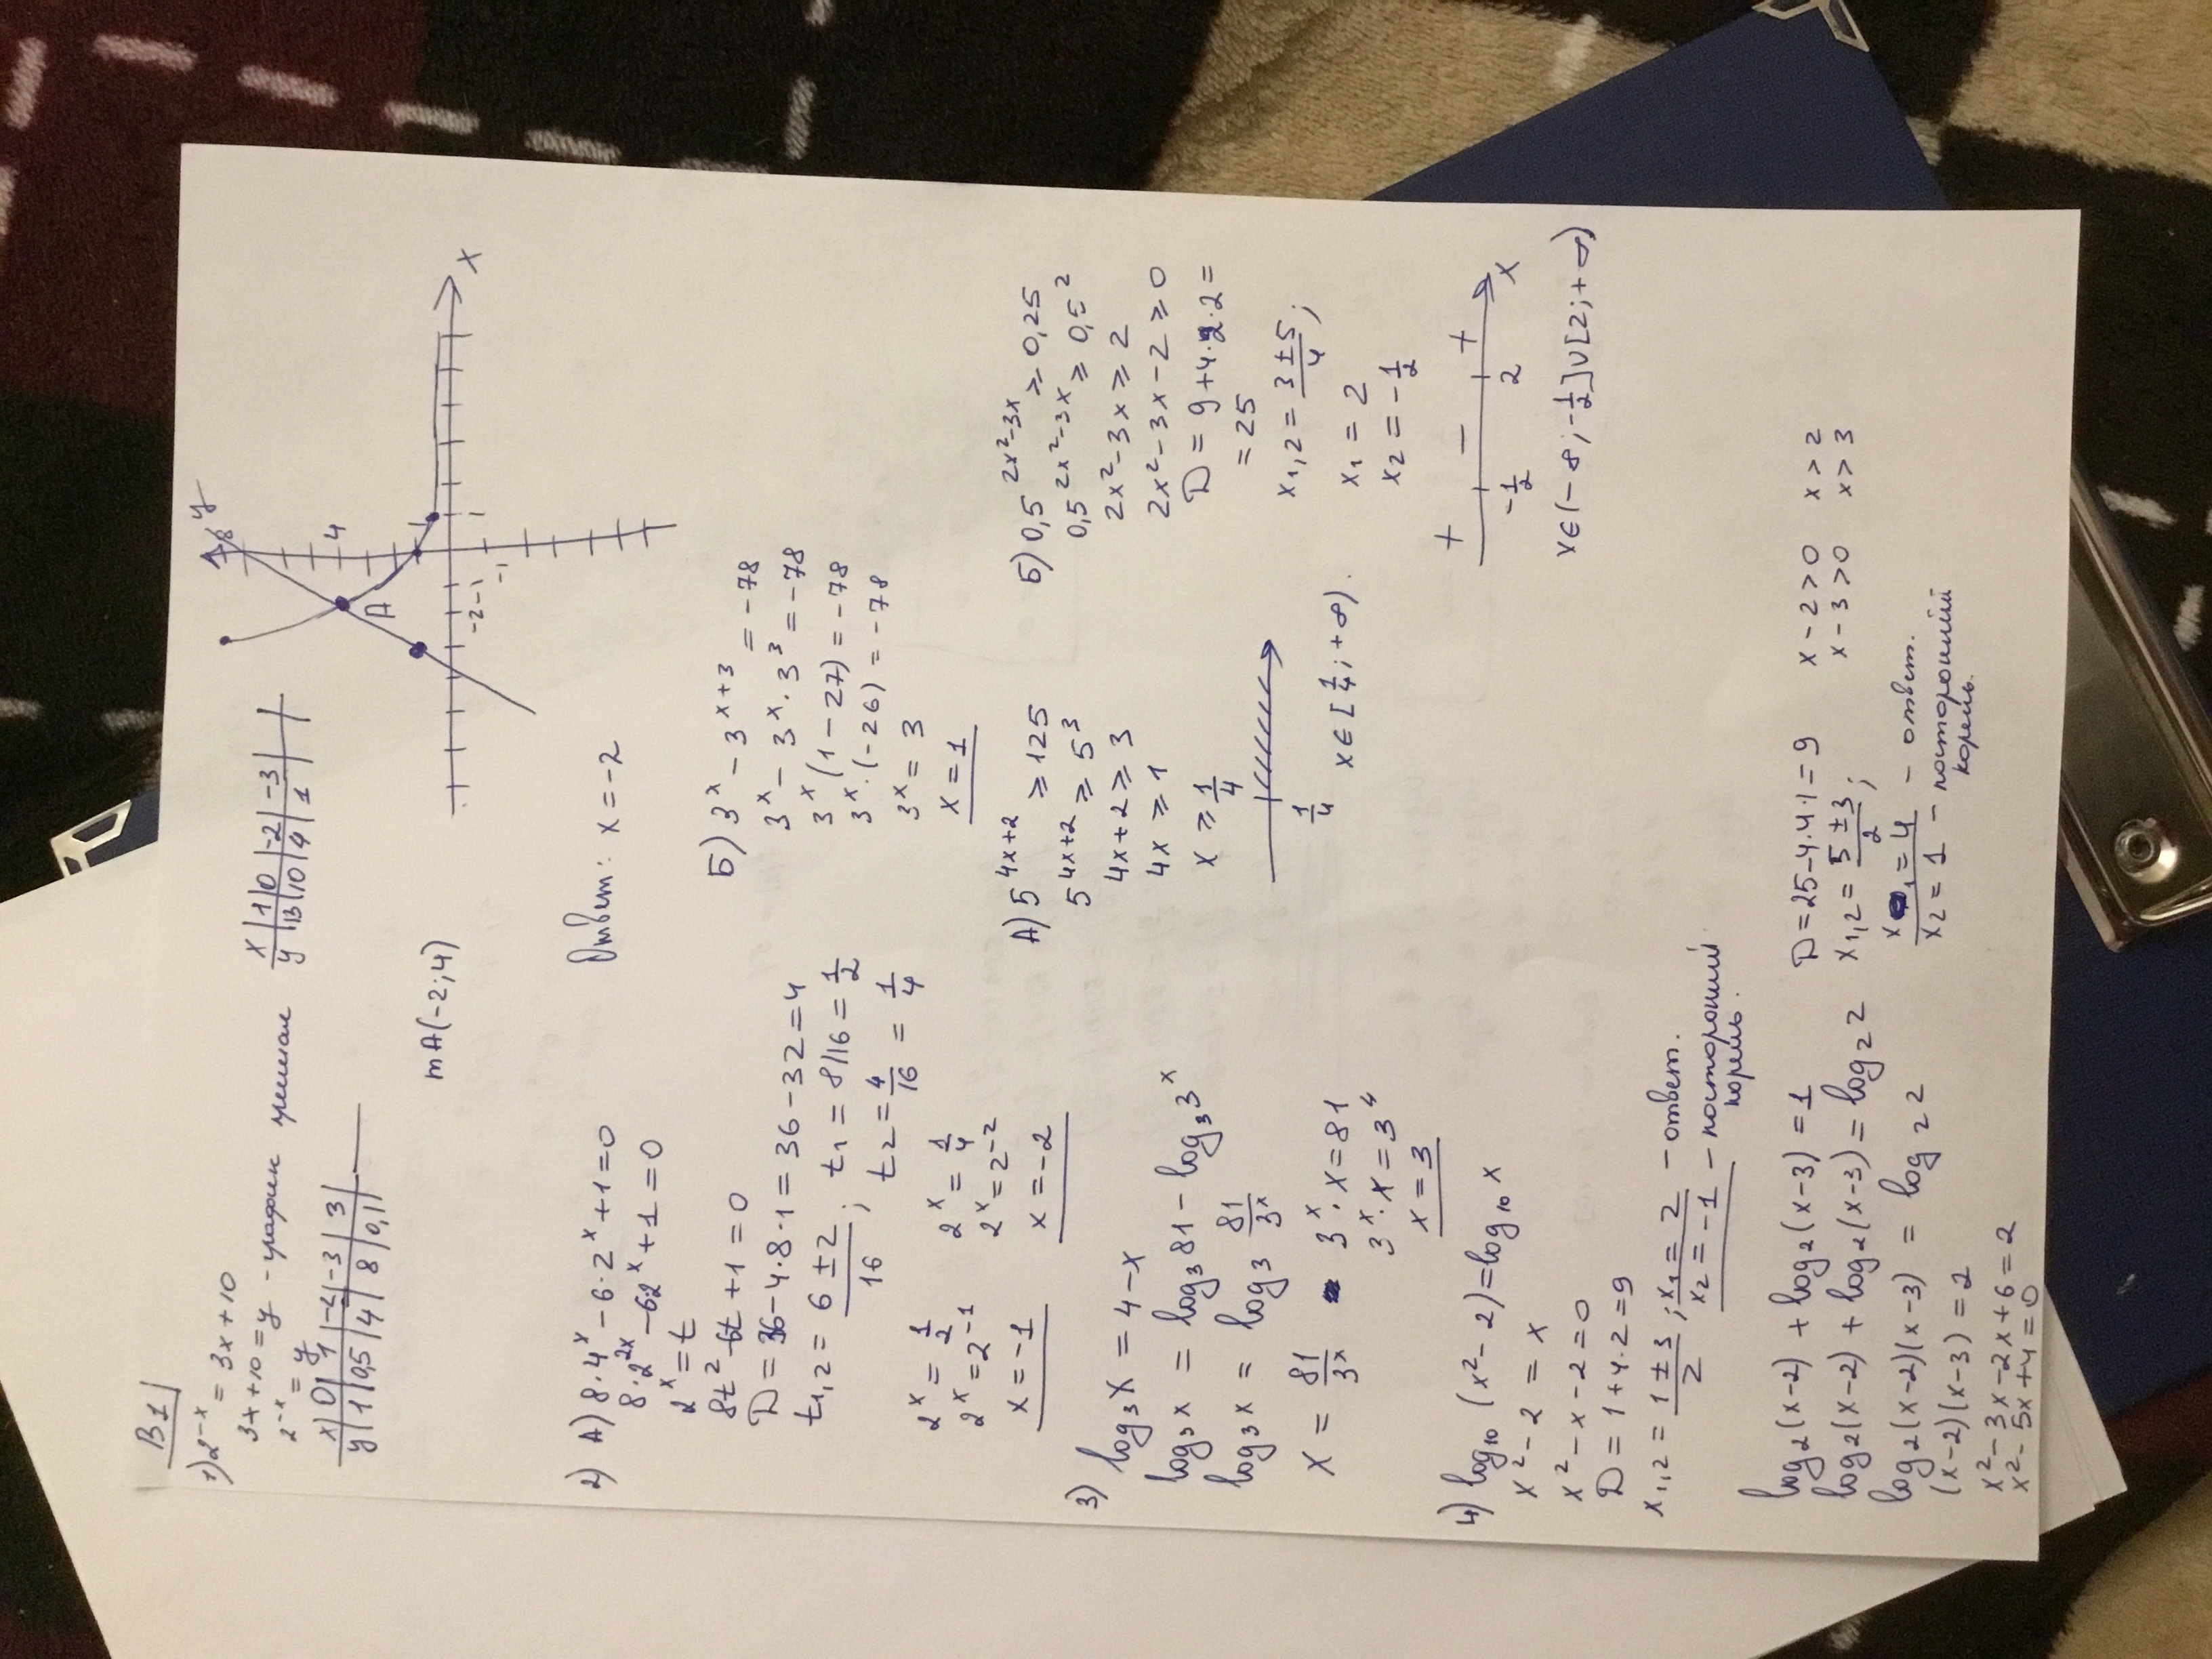 B 1
1) 2^-x = 3x + 10
3x + 10 = y - график
2^-x = y
x | 0 | 1 | -2 | -3 | 3 |
y | 1 | 0,5 | 4 | 8 | 0,1 |
x | 1 | 0 | -2 | -3 |
y | 13 | 10 | 4 | 1 |
y
8
4
A
-2 -1
-1
1
x
mA(-2;4)
Ответ: x = -2
2) А) 8·4^x - 6·2^x + 1 = 0
8·2^2x - 62^x + 1 = 0
2^x = t
8t^2 - 6t + 1 = 0
D = 36 - 4·8·1 = 36 - 32 = 4
t1,2 = (6 ± 2)/16 ; t1 = 8/16 = 1/2
t2 = 4/16 = 1/4
2^x = 1/2
2^x = 2^-1
x = -1
2^x = 1/4
2^x = 2^-2
x = -2
Б) 3^x - 3^x+3 = -78
3^x - 3^x · 3^3 = -78
3^x (1 - 27) = -78
3^x · (-26) = -78
3^x = 3
x = 1
3) log3 x = 4 - x
log3 x = log3 81 - log3 3^x
log3 x = log3 81/3^x
x = 81/3^x
3^x · x = 81
3^x · x = 3^4
x = 3
А) 5^4x+2 ≥ 125
5^4x+2 ≥ 5^3
4x + 2 ≥ 3
4x ≥ 1
x ≥ 1/4
1/4
x ∈ [1/4; +∞).
Б) 0,5^2x^2-3x ≥ 0,25
0,5^2x^2-3x ≥ 0,5^2
2x^2 - 3x ≥ 2
2x^2 - 3x - 2 ≥ 0
D = 9 + 4·2·2 =
= 25
x1,2 = (3 ± 5)/4 ;
x1 = 2
x2 = -1/2
+ - +
-1/2 2 x
x ∈ (-∞; -1/2] ∪ [2; +∞)
4) log10 (x^2 - 2) = log10 x
x^2 - 2 = x
x^2 - x - 2 = 0
D = 1 + 4·2 = 9
x1,2 = (1 ± 3)/2 ; x1 = 2 - ответ.
x2 = -1 - посторонний
корень.
log2 (x-2) + log2 (x-3) = 1
log2 (x-2) + log2 (x-3) = log2 2
log2 (x-2)(x-3) = log2 2
(x-2)(x-3) = 2
x^2 - 3x - 2x + 6 = 2
x^2 - 5x + 4 = 0
D = 25 - 4·4·1 = 9
x1,2 = (5 ± 3)/2 ;
x1 = 4 - ответ.
x2 = 1 - посторонний
корень.
x - 2 > 0 x > 2
x - 3 > 0 x > 3